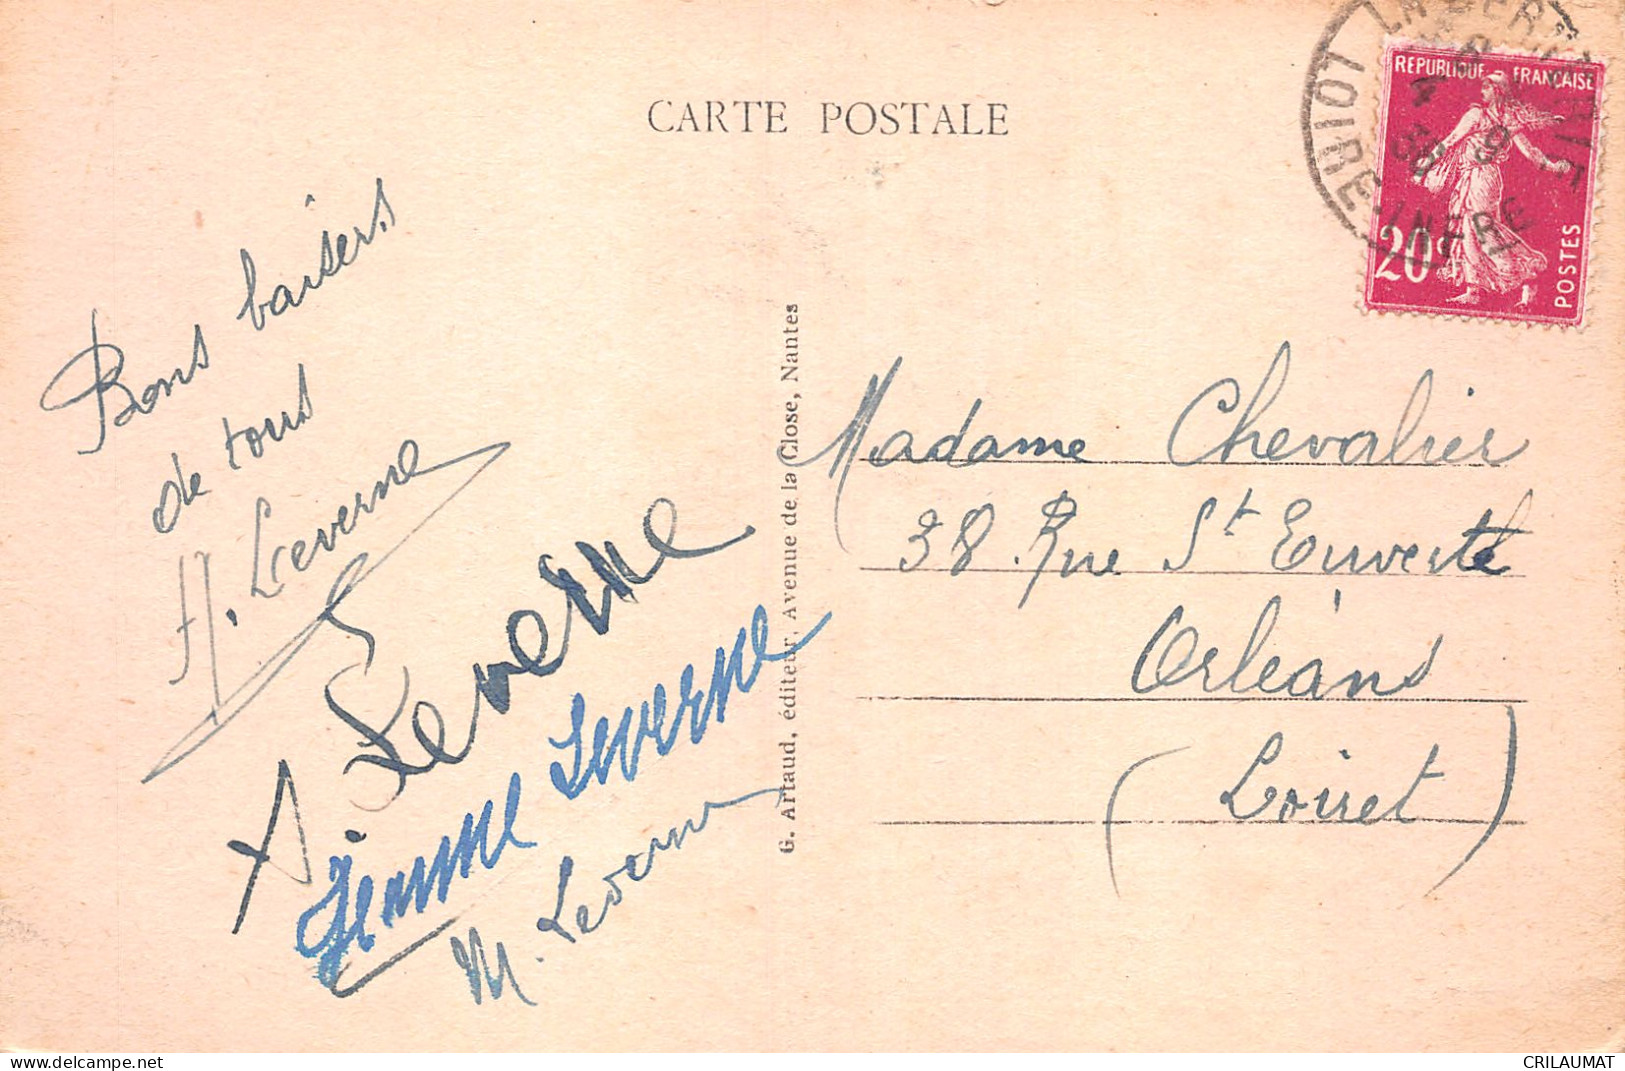 CARTE POSTALE
REPUBLIQUE FRANÇAISE
20c
POSTES
LOIRE-INFRE
Bons baisers
de tous
H. Leverne
A Leverne
Leverne
M. Leverne
G. Artaud, éditeur, Avenue de la Close, Nantes
Madame Chevalier
38 Rue St Euverte
Orléans
(Loiret)
delcampe.net
CRILAUMAT